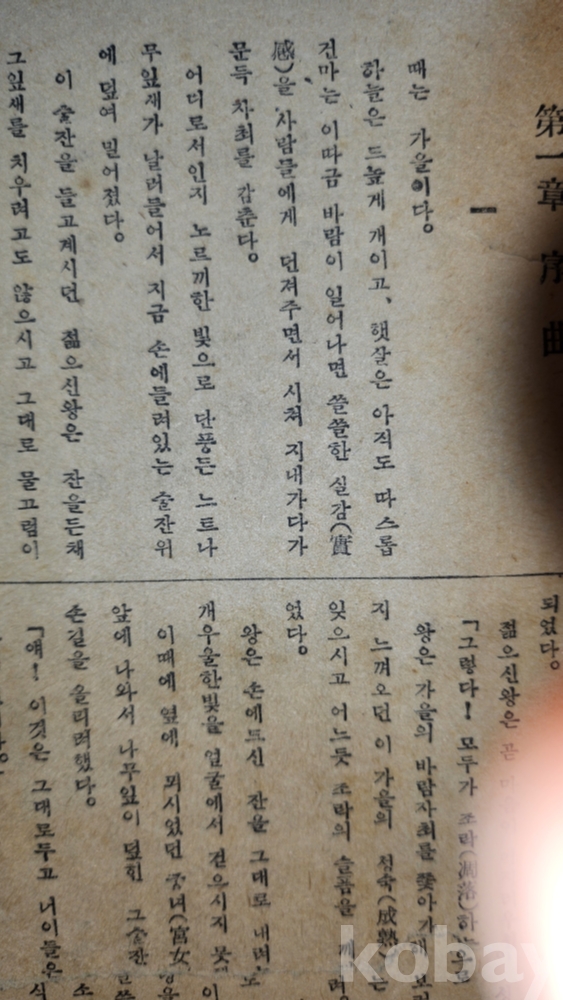 第一章 序曲
一
때는 가을이다.
하늘은 드높게 개이고, 햇살은 아직도 따스롭
건마는 이따금 바람이 일어나면 쓸쓸한 실감(實
感)을 사람들에게 던져주면서 시쳐 지내가다가
문득 자최를 감춘다.
어디로서인지 노르끼한 빛으로 단풍든 느트나
무잎새가 날러들어서 지금 손에들려있는 술잔위
에 덮여 밀어졌다.
이 술잔을 들고계시던 젊으신왕은 잔을든채
그잎새를 치우려고도 않으시고 그대로 물끄럼이
되었다.
젊으신왕은 곧
「그렇다! 모두가 조락(凋落)하는
왕은 가을의 바람자최를 쫓아가
지 느껴오던 이 가을의 성숙(成熟
잊으시고 어느듯 조락의 슬픔을 깨
었다.
왕은 손에드신 잔을 그대로 내려
개우울한빛을 얼굴에서 걷으시지 못
이때에 옆에 뫼시었던 궁녀(宮女
앞에 나와서 나무잎이 덮힌 그술잔
손길을 올리려했다.
「얘! 이것은 그대로두고 너이들은
kobay